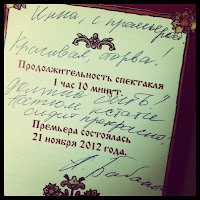 Инна, с премьерой
Красивая, торва.
Продолжительность спектакля
1 час 10 минут.
должна быть!
Костюм кстати
сидит прекрасно!
Премьера состоялась
21 ноября 2012 года.